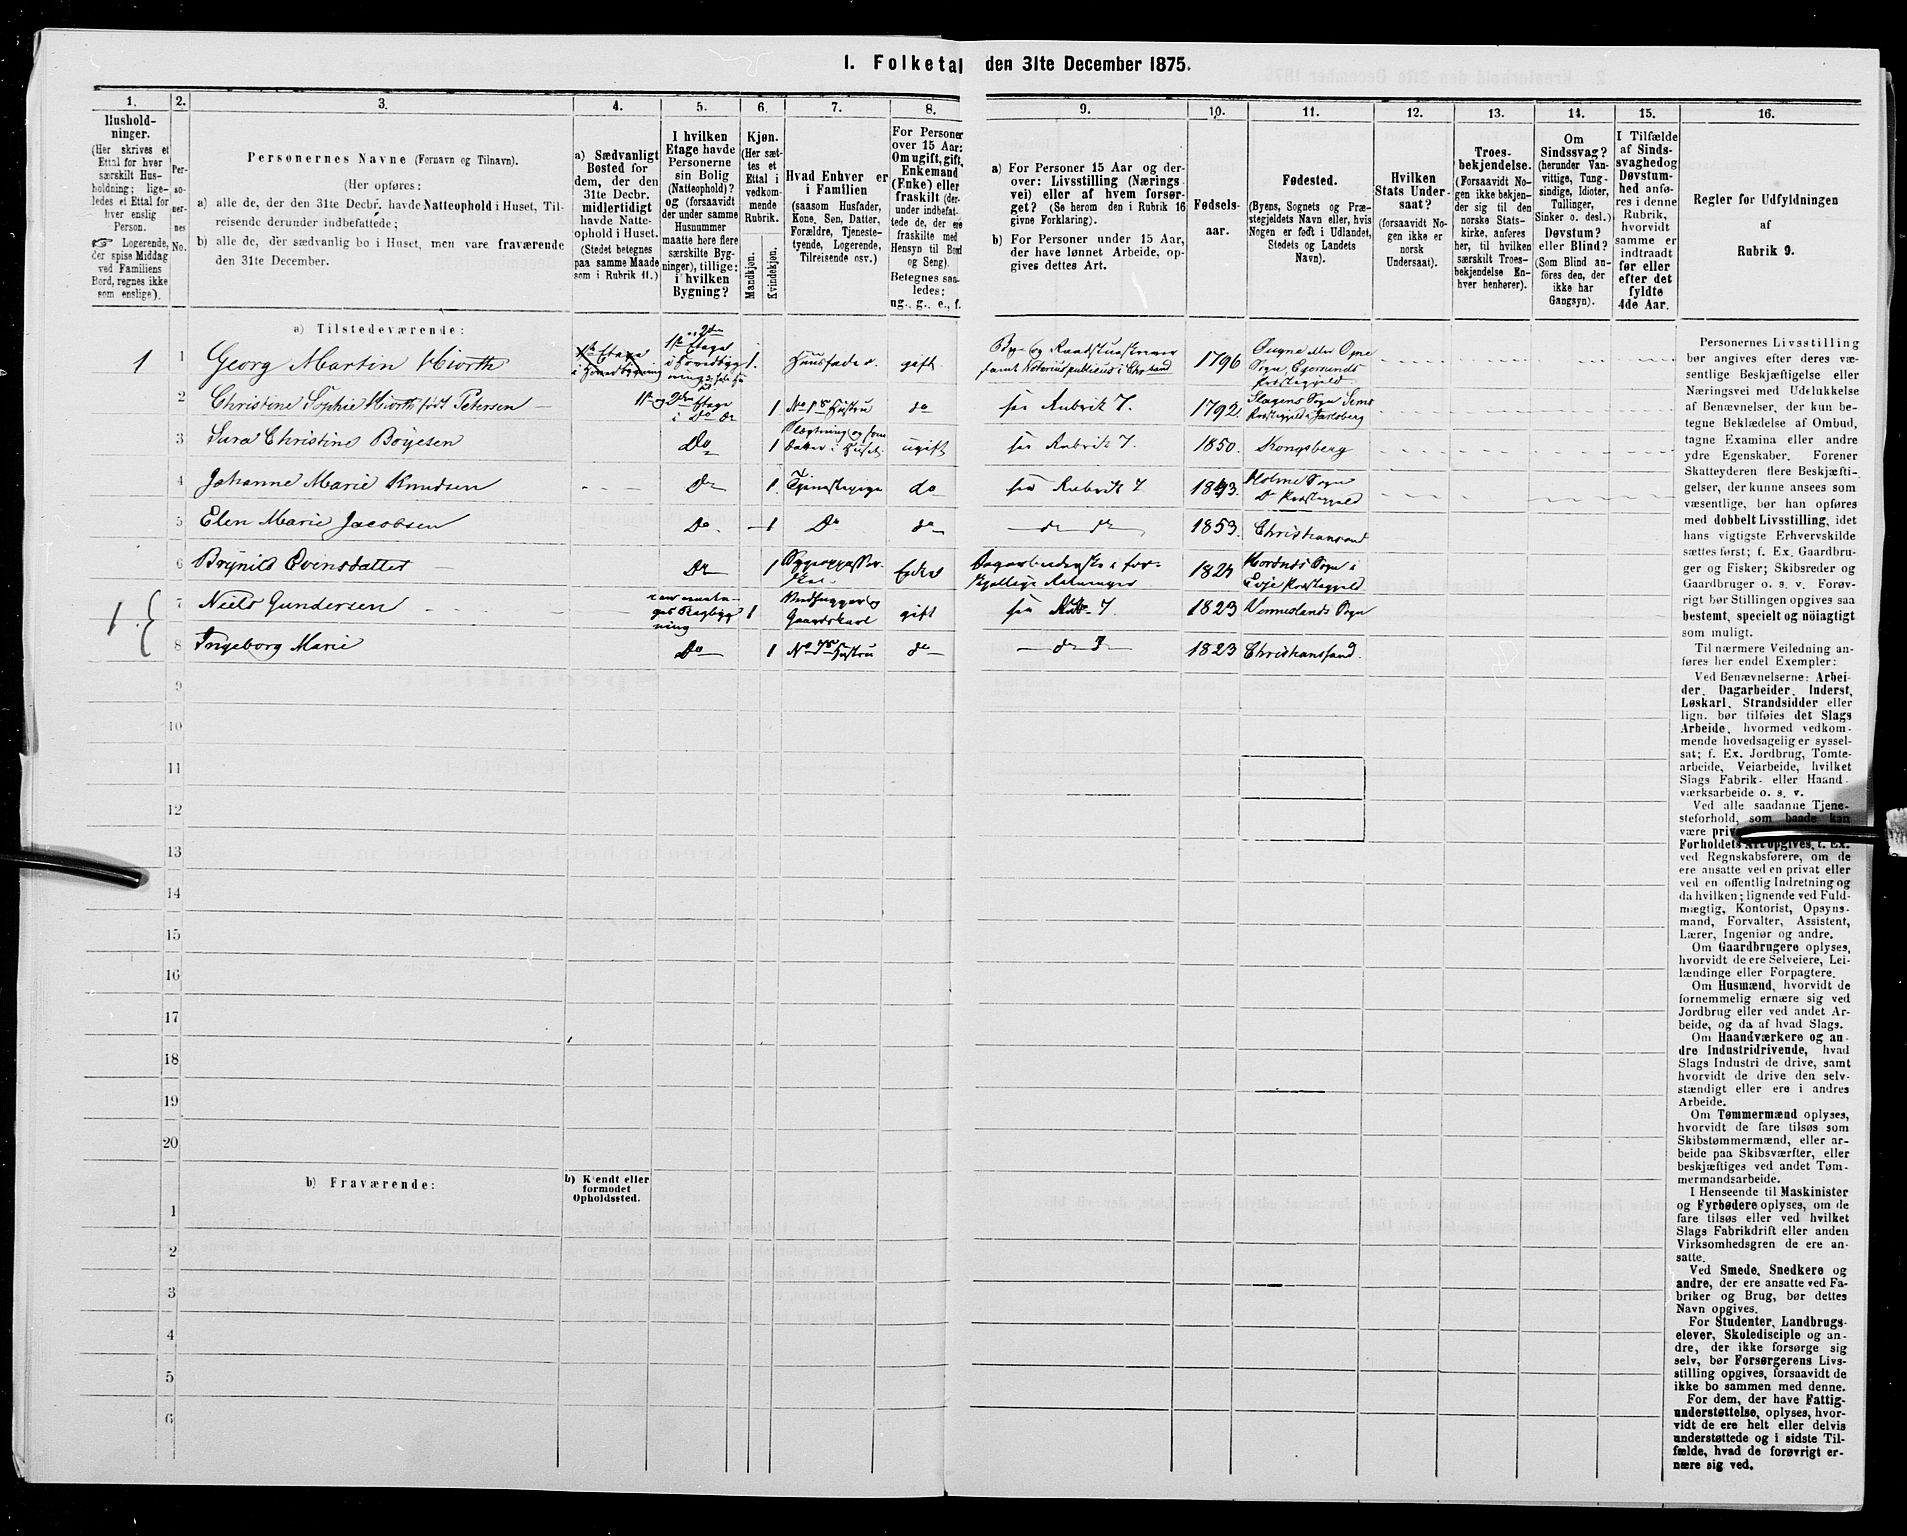 I. Folketal den 31te December 1875.
1. 2. 3. 4. 5. 6. 7. 8. 9. 10. 11. 12. 13. 14. 15. 16.
Hushold-
ninger.
(Her skrives et
Ettal for hver
særskilt Hus-
holdning; lige-
ledes et Ettal for
hver enslig
Person.
☞ Logerende,
der spise Middag
ved Familiens
Bord, regnes ikke
som enslige).
Per-
so-
ner-
nes
No.
Personernes Navne (Fornavn og Tilnavn).
(Her opføres:
a) alle de, der den 31te Decbr. havde Natteophold i Huset, Til-
reisende derunder indbefattede;
b) alle de, der sædvanlig bo i Huset, men vare fraværende
den 31te December.
a) Sædvanligt
Bosted for
dem, der den
31te Decbr.
midlertidigt
havde Natte-
ophold i Huset.
(Stedet betegnes
paa samme Maade
som i Rubrik 11.)
I hvilken
Etage havde
Personerne
sin Bolig
(Natteophold)?
og (forsaavidt
der under samme
Husnummer
maatte høre flere
særskilte Byg-
ninger), tillige:
i hvilken
Bygning?
Kjøn.
(Her sæt-
tes et
Ettal i
vedkom-
mende
Rubrik.
Mandkjøn.
Kvindekjøn.
Hvad Enhver er
i Familien
(saasom Husfader,
Kone, Søn, Datter,
Forældre, Tjeneste-
tyende, Logerende,
Tilreisende osv.)
For Personer
over 15 Aar:
Om ugift, gift,
Enkemand
(Enke) eller
fraskilt (der-
under indbefat-
tede de, der ere
fraskilte med
Hensyn til Bord
og Seng).
Betegnes saa-
ledes:
ug., g., e., f.
a) For Personer 15 Aar og der-
over: Livsstilling (Nærings
vei) eller af hvem forsør-
get? (Se herom den i Rubrik 16
givne Forklaring).
b) For Personer under 15 Aar,
der have lønnet Arbeide, op-
gives dettes Art.
Fødsels-
aar.
Fødested.
(Byens, Sognets og Præ-
stegjeldets Navn eller, hvis
Nogen er født i Udlandet,
Stedets og Landets
Navn).
Hvilken
Stats Under-
saat?
(forsaavidt No-
gen ikke er
norsk
Undersaat).
Troes-
bekjendelse.
(Forsaavidt No-
gen ikke bekjen-
der sig til den
norske Stats-
kirke, anføres
her, til hvilken
særskilt Troes-
bekjendelse En-
hver henhører).
Om
Sindssvag?
(herunder Van-
vittige, Tung-
sindige, Idioter,
Tullinger,
Sinker o. desl.)
Døvstum?
eller Blind?
(Som Blind an-
føres den, der
ikke har
Gangsyn).
I Tilfælde
af Sinds-
svaghed og
Døvstum-
hed anfø-
res i denne
Rubrik,
hvorvidt
samme er
indtraadt
før eller
efter det
fyldte
4de Aar.
Regler for Udfyldningen
af
Rubrik 9.
a) Tilstedeværende:
1 1 Georg Martin Hiorth 1. Huusfader gift 1796
2 Christine Sophie Hiorth født Petersen 1 Hustru do see Rubrik 7. 1792.
3 Sara Christine Böyesen Do 1 ugift see Rubrik 7. 1850. Kongsberg
4 Johanne Marie Knudsen Do 1. Tjenestepige do see Rubrik 7 1843. Holme Sogn
5 Elen Marie Jacobsen Do 1 Do do do do 1853. Christiansand
6 Brynild Evensdatter Do 1 1824
7 Niels Gundersen 1 Vedhugger og Gaardskarl gift see Rub. 7 1823
8 Ingeborg Marie Do 1 Hustru do do 1823 Christianssand.
9
10
11
12
13
14
15
16
17
18
19
20
b) Fraværende:
b) Kjendt eller
formodet
Opholdssted.
1
2
3
4
5
6
Personernes Livsstilling
bør angives efter deres væ-
sentlige Beskjæftigelse eller
Næringsvei med Udelukkelse
af Benævnelser, der kun be-
tegne Beklædelse af Ombud,
tagne Examina eller andre
ydre Egenskaber. Forener
Skatteyderen flere Beskjæfti-
gelser, der kunne ansees som
væsentlige, bør han opføres
med dobbelt Livsstilling, idet
hans vigtigste Erhvervskilde
sættes først; f. Ex. Gaardbru-
ger og Fisker; Skibsreder og
Gaardbruger o. s. v. Forøv-
rigt bør Stillingen opgives saa
bestemt, specielt og nøiagtigt
som muligt.
Til nærmere Veiledning an-
føres her endel Exempler:
Ved Benævnelserne: Arbei-
der, Dagarbeider, Inderst,
Løskarl, Strandsidder eller
lign. bør tilføies det Slags
Arbeide, hvormed vedkom-
mende hovedsagelig er syssel-
sat; f. Ex. Jordbrug, Tomte-
arbeide, Veiarbeide, hvilket
Slags Fabrik- eller Haand-
værksarbeide o. s. v.
Ved alle saadanne Tjene-
steforhold, som baade kan
være
Forholdets Art opgives, f. Ex.
ved Regnskabsførere, om de
ere ansatte ved en privat eller
ved en offentlig Indretning og
da hvilken; lignende ved Fuld-
mægtig, Kontorist, Opsyns-
mand, Forvalter, Assistent,
Lærer, Ingeniør og andre.
Om Gaardbrugere oplyses,
hvorvidt de ere Selveiere, Lei-
lændinge eller Forpagtere.
Om Husmænd, hvorvidt de
fornemmelig ernære sig ved
Jordbrug eller ved andet Ar-
beide, og da af hvad Slags.
Om Haandværkere og an-
dre Industridrivende, hvad
Slags Industri de drive, samt
hvorvidt de drive den selv-
stændigt eller ere i andres
Arbeide.
Om Tømmermænd oplyses,
hvorvidt de fare tilsøs som
Skibstømmermænd, eller ar-
beide paa Skibsværfter, eller
beskjæftiges ved andet Tøm-
mermandsarbeide.
I Henseende til Maskinister
og Fyrbødere oplyses, om de
fare tilsøs eller ved hvilket
Slags Fabrikdrift eller anden
Virksomhedsgren de ere an-
satte.
Ved Smede, Snedkere og
andre, der ere ansatte ved Fa-
briker og Brug, bør dettes
Navn opgives.
For Studenter, Landbrugs-
elever, Skoledisciple og an-
dre, der ikke forsørge sig
selv, bør Forsørgerens Livs-
stilling opgives, forsaavidt de
ikke bo sammen med denne.
For dem, der have Fattig-
understøttelse, oplyses, hvor-
vidt de ere helt eller delvis
understøttede og i sidste Til-
fælde, hvad de forøvrigt er-
nære sig ved.